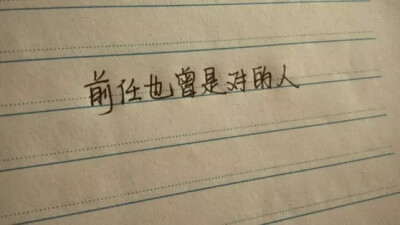 前任也曾是对的人